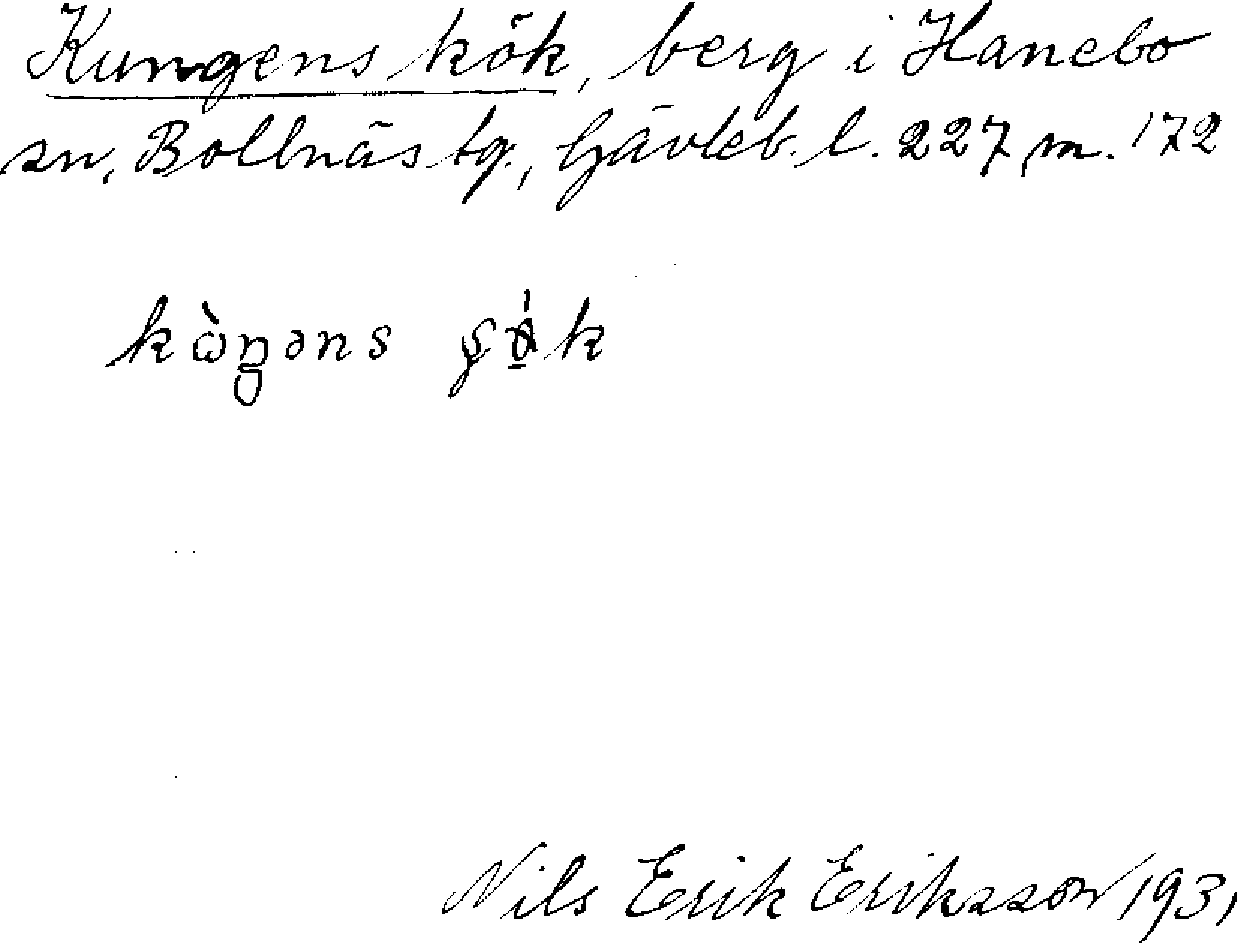 Kungens kök, berg i Hanebo
sn, Bollnäs tg., Gävleb. l. 227 m. 172
kὼŋəns
Nils Erik Eriksson 1931